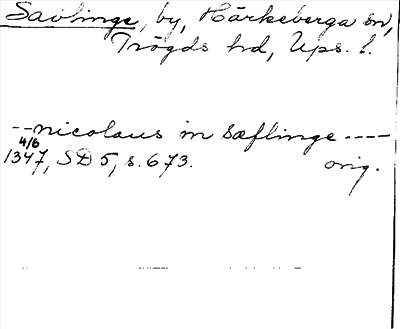 Savlinge, by, Härkeberga sn,
Trögds hd, Ups. l.
--nicolaus in sæflinge----
4/6
1347, SD 5, s. 673. orig.